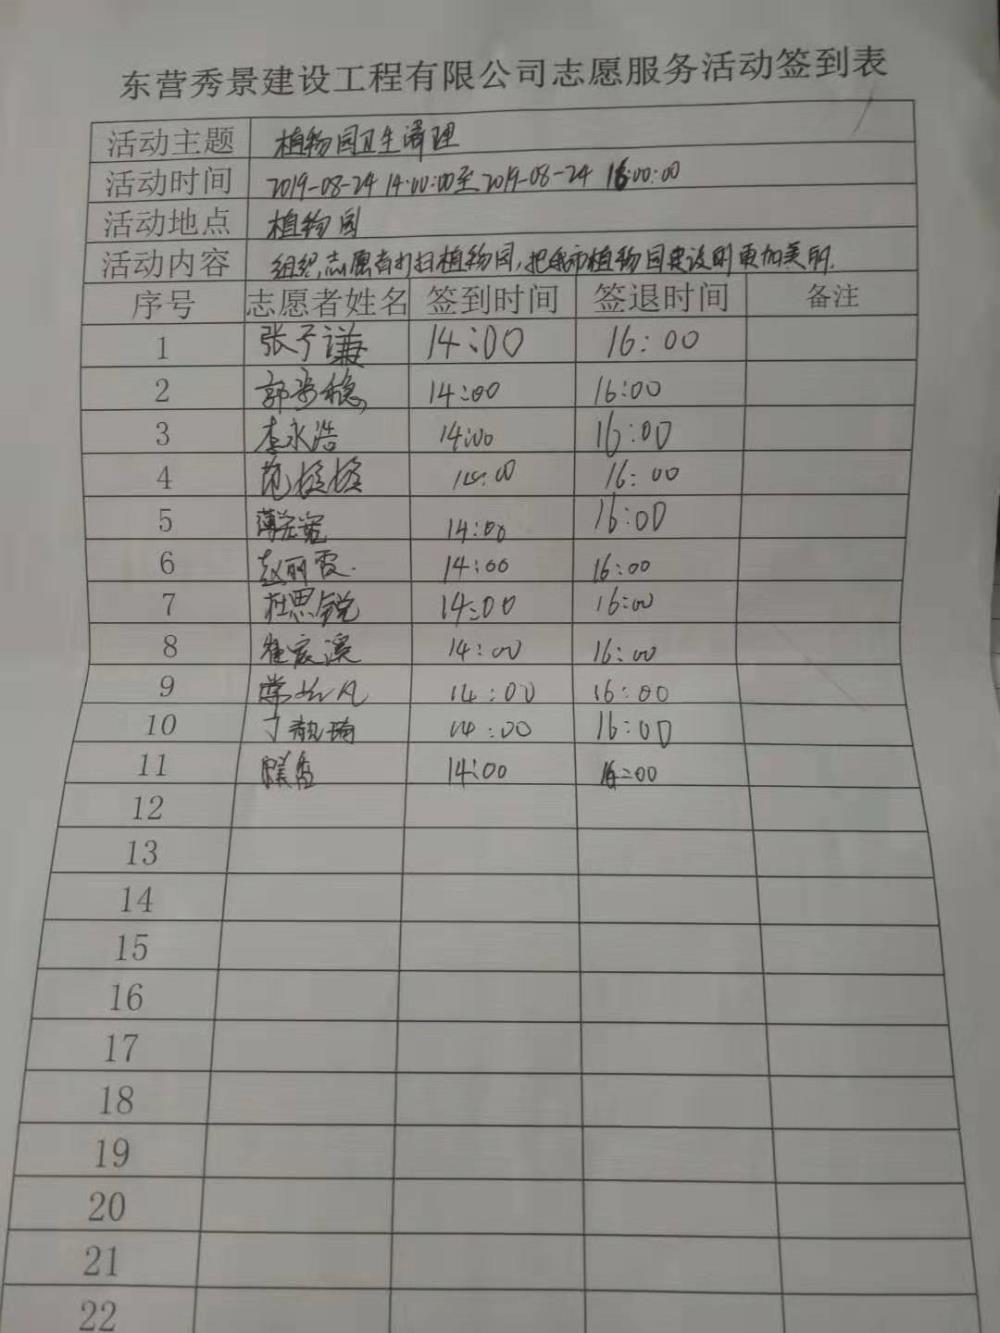 东营秀景建设工程有限公司志愿服务活动签到表
活动主题 植物园卫生清理
活动时间 2019-08-24 14:00:00至2019-08-24 16:00:00
活动地点 植物园
活动内容 组织志愿者打扫植物园,把我市植物园建设的更加美丽.
序号 志愿者姓名 签到时间 签退时间 备注
1 张予谦 14:00 16:00
2 郭安稳 14:00 16:00
3 李永浩 14:00 16:00
4 范 14:00 16:00
5 14:00 16:00
6 赵丽霞. 14:00 16:00
7 杜思锐 14:00 16:00
8 14:00 16:00
9 14:00 16:00
10 丁 14:00 16:00
11 14:00 16:00
12
13
14
15
16
17
18
19
20
21
22